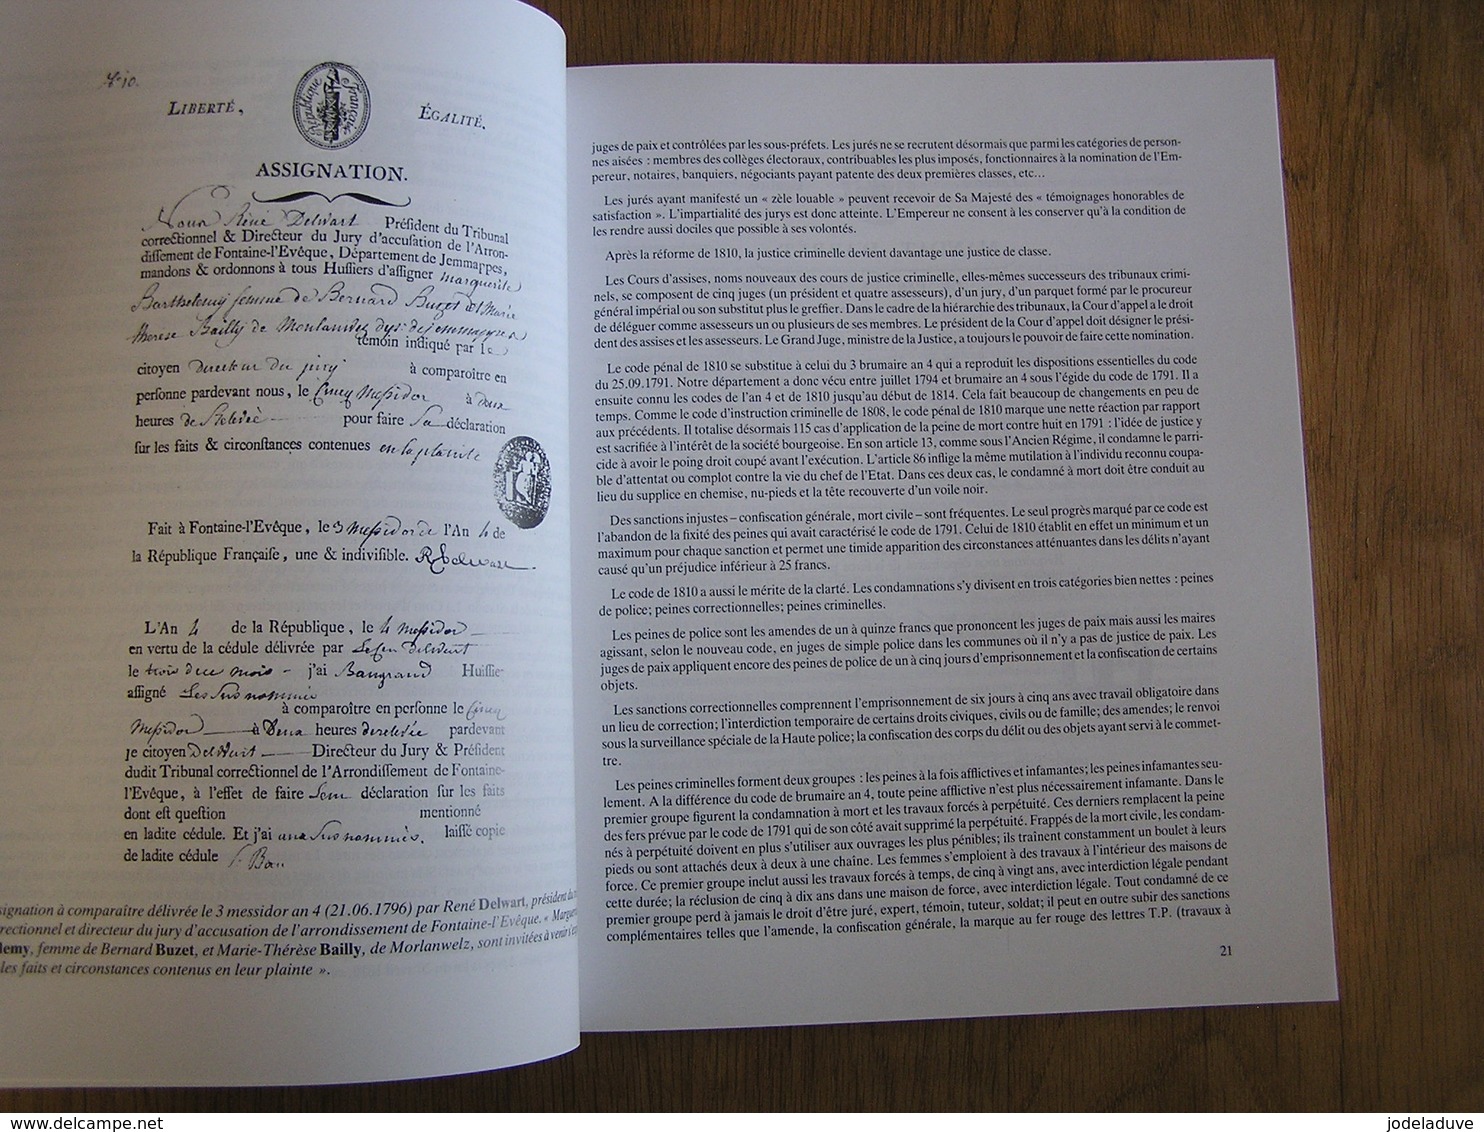 Nº 10.
LIBERTÉ,
République Française
ÉGALITÉ.
ASSIGNATION.
Nous René Delwart Préſident du Tribunal
correctionnel & Directeur du Jury d'accuſation de l'Arron-
diſſement de Fontaine-l'Evêque, Département de Jemmappes,
mandons & ordonnons à tous Huſſiers d'aſſigner Marguerite
Barthelemy femme de Bernard Buzet et Marie
therese Bailly de Morlanwez
témoin indiqué par le
citoyen directeur du jury à comparoître en
perſonne pardevant nous, le Cinq Meſſidor à deux
heures de relevée pour faire Sa déclaration
ſur les faits & circonſtances contenues en la plainte
Fait à Fontaine-l'Evêque, le 3 Meſſidor de l'An 4 de
la République Françaiſe, une & indiviſible. R Delwart
L'An 4 de la République, le 4 meſſidor
en vertu de la cédule délivrée par Le Cen Delwart
le trois du mois j'ai Bangrand Huiſſie-
aſſigné Les Sus nommés
à comparoître en perſonne le Cinq
Meſſidor à Deux heures de relevée pardevant
le citoyen Delwart Directeur du Jury & Préſident
dudit Tribunal correctionnel de l'Arrondiſſement de Fontaine-
l'Evêque, à l'effet de faire Leur déclaration ſur les faits
dont eſt queſtion mentionné
en ladite cédule. Et j'ai aux Sus nommés. laiſſé copie
de ladite cédule
signation à comparaître délivrée le 3 messidor an 4 (21.06.1796) par René Delwart, président du
rrectionnel et directeur du jury d'accusation de l'arrondissement de Fontaine-l'Evêque. « Margue
lemy, femme de Bernard Buzet, et Marie-Thérèse Bailly, de Morlanwelz, sont invitées à venir
les faits et circonstances contenus en leur plainte ».
juges de paix et contrôlées par les sous-préfets. Les jurés ne se recrutent désormais que parmi les catégories de person-
nes aisées : membres des collèges électoraux, contribuables les plus imposés, fonctionnaires à la nomination de l'Em-
pereur, notaires, banquiers, négociants payant patente des deux premières classes, etc...
Les jurés ayant manifesté un « zèle louable » peuvent recevoir de Sa Majesté des « témoignages honorables de
satisfaction ». L'impartialité des jurys est donc atteinte. L'Empereur ne consent à les conserver qu'à la condition de
les rendre aussi dociles que possible à ses volontés.
Après la réforme de 1810, la justice criminelle devient davantage une justice de classe.
Les Cours d'assises, noms nouveaux des cours de justice criminelle, elles-mêmes successeurs des tribunaux crimi-
nels, se composent de cinq juges (un président et quatre assesseurs), d'un jury, d'un parquet formé par le procureur
général impérial ou son substitut plus le greffier. Dans le cadre de la hiérarchie des tribunaux, la Cour d'appel a le droit
de déléguer comme assesseurs un ou plusieurs de ses membres. Le président de la Cour d'appel doit désigner le prési-
dent des assises et les assesseurs. Le Grand Juge, ministre de la Justice, a toujours le pouvoir de faire cette nomination.
Le code pénal de 1810 se substitue à celui du 3 brumaire an 4 qui a reproduit les dispositions essentielles du code
du 25.09.1791. Notre département a donc vécu entre juillet 1794 et brumaire an 4 sous l'égide du code de 1791. Il a
ensuite connu les codes de l'an 4 et de 1810 jusqu'au début de 1814. Cela fait beaucoup de changements en peu de
temps. Comme le code d'instruction criminelle de 1808, le code pénal de 1810 marque une nette réaction par rapport
aux précédents. Il totalise désormais 115 cas d'application de la peine de mort contre huit en 1791 : l'idée de justice y
est sacrifiée à l'intérêt de la société bourgeoise. En son article 13, comme sous l'Ancien Régime, il condamne le parri-
cide à avoir le poing droit coupé avant l'exécution. L'article 86 inflige la même mutilation à l'individu reconnu coupa-
ble d'attentat ou complot contre la vie du chef de l'Etat. Dans ces deux cas, le condamné à mort doit être conduit au
lieu du supplice en chemise, nu-pieds et la tête recouverte d'un voile noir.
Des sanctions injustes – confiscation générale, mort civile – sont fréquentes. Le seul progrès marqué par ce code est
l'abandon de la fixité des peines qui avait caractérisé le code de 1791. Celui de 1810 établit en effet un minimum et un
maximum pour chaque sanction et permet une timide apparition des circonstances atténuantes dans les délits n'ayant
causé qu'un préjudice inférieur à 25 francs.
Le code de 1810 a aussi le mérite de la clarté. Les condamnations s'y divisent en trois catégories bien nettes : peines
de police; peines correctionnelles; peines criminelles.
Les peines de police sont les amendes de un à quinze francs que prononcent les juges de paix mais aussi les maires
agissant, selon le nouveau code, en juges de simple police dans les communes où il n'y a pas de justice de paix. Les
juges de paix appliquent encore des peines de police de un à cinq jours d'emprisonnement et la confiscation de certains
objets.
Les sanctions correctionnelles comprennent l'emprisonnement de six jours à cinq ans avec travail obligatoire dans
un lieu de correction; l'interdiction temporaire de certains droits civiques, civils ou de famille; des amendes; le renvoi
sous la surveillance spéciale de la Haute police; la confiscation des corps du délit ou des objets ayant servi à le commet-
tre.
Les peines criminelles forment deux groupes : les peines à la fois afflictives et infamantes; les peines infamantes seu-
lement. A la différence du code de brumaire an 4, toute peine afflictive n'est plus nécessairement infamante. Dans le
premier groupe figurent la condamnation à mort et les travaux forcés à perpétuité. Ces derniers remplacent la peine
des fers prévue par le code de 1791 qui de son côté avait supprimé la perpétuité. Frappés de la mort civile, les condam-
nés à perpétuité doivent en plus s'utiliser aux ouvrages les plus pénibles; ils traînent constamment un boulet à leurs
pieds ou sont attachés deux à deux à une chaîne. Les femmes s'emploient à des travaux à l'intérieur des maisons de
force. Ce premier groupe inclut aussi les travaux forcés à temps, de cinq à vingt ans, avec interdiction légale pendant
cette durée; la réclusion de cinq à dix ans dans une maison de force, avec interdiction légale. Tout condamné de ce
premier groupe perd à jamais le droit d'être juré, expert, témoin, tuteur, soldat; il peut en outre subir des sanctions
complémentaires telles que l'amende, la confiscation générale, la marque au fer rouge des lettres T.P. (travaux à
21
delcampe.net
jodeladuve